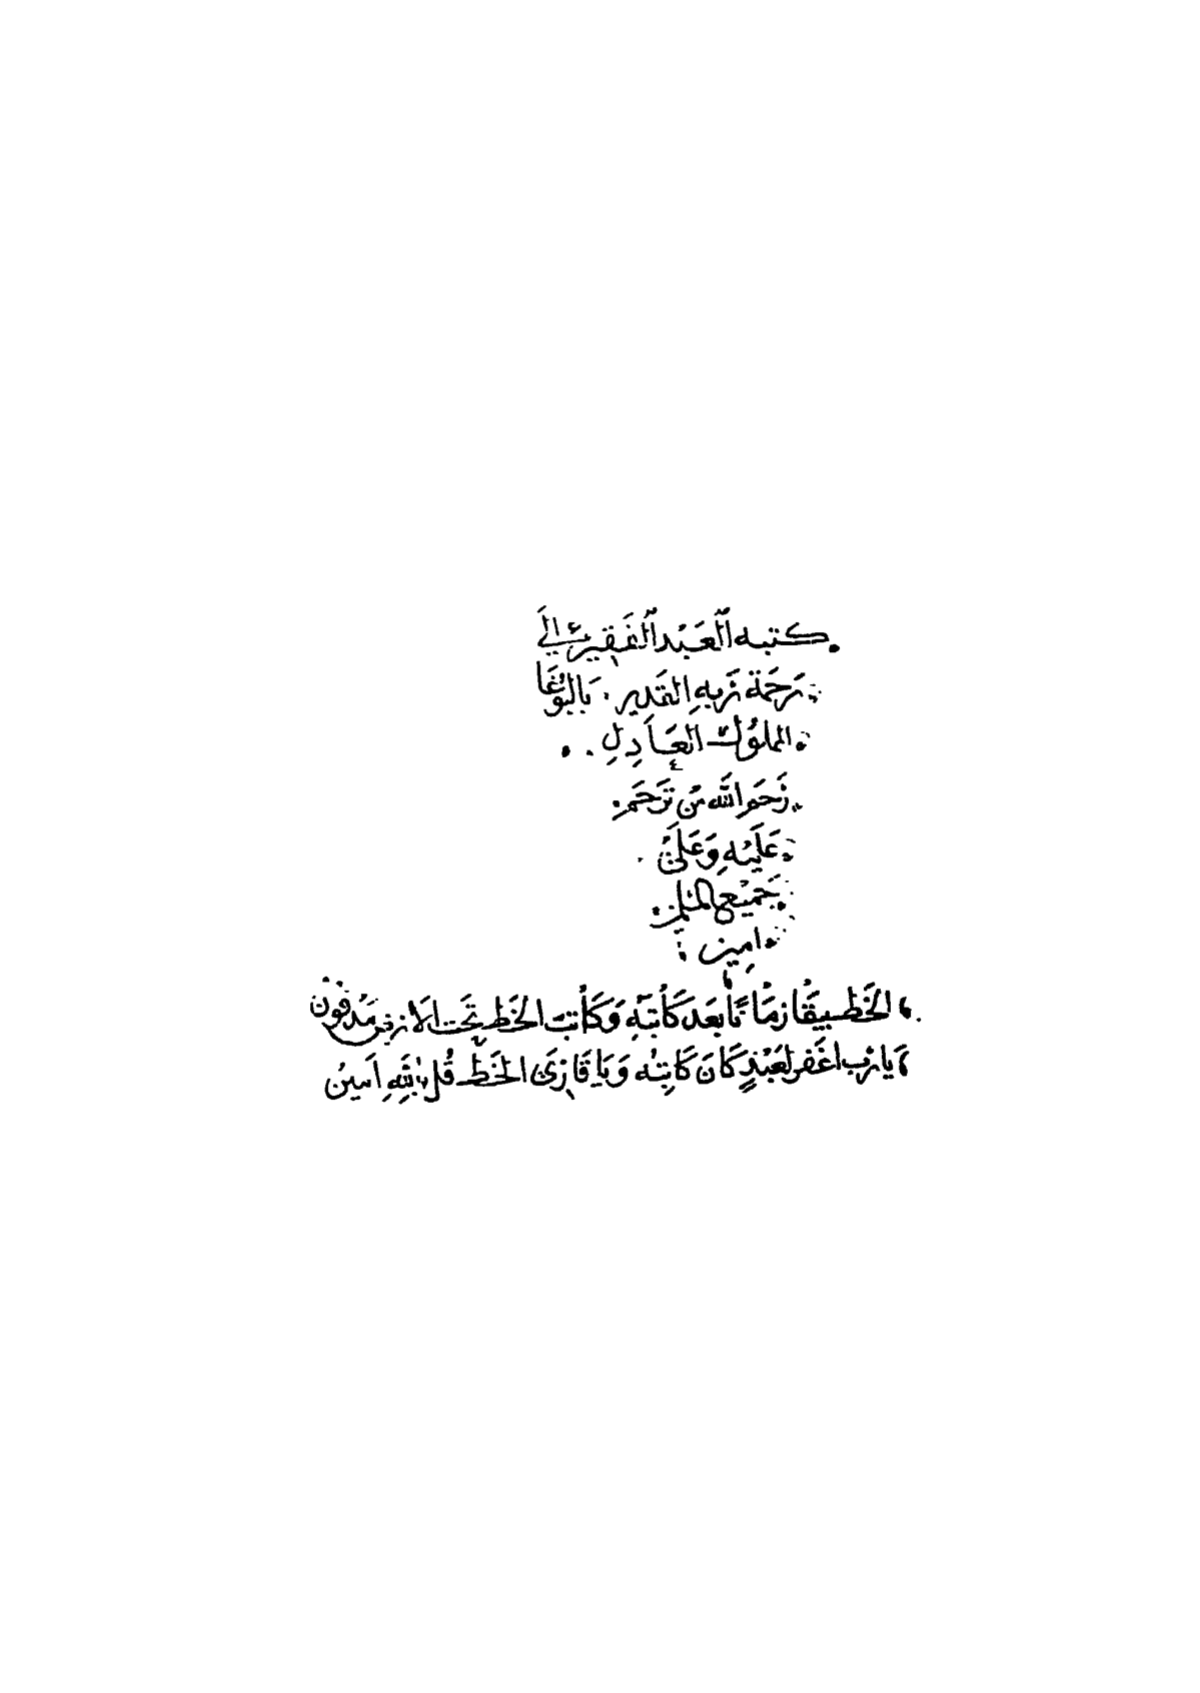 كتبه العبد الفقير الى
رحمة ربه القدير . يالبوغا
المملوك العادل
رحم الله من ترحم
عليه وعلى
جميع المسلمين
امين
الخط يبقا زمانا بعد كاتبه وكاتب الخط تحت الارض مدفون
يا رب اغفر لعبد كان كاتبه ويا قارئ الخط قل بالله امين